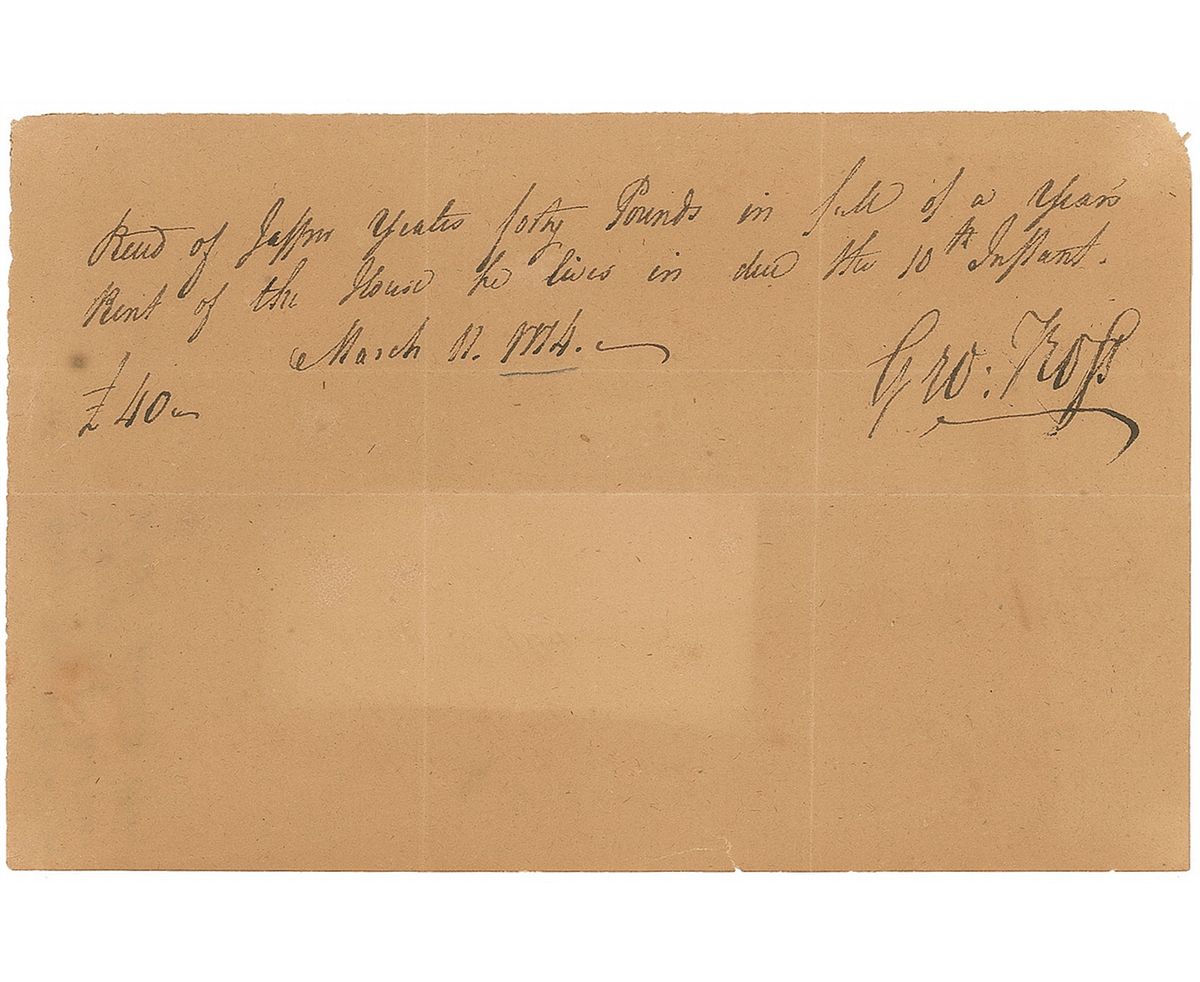 Recd of Jasper Yeates forty Pounds in full of a Years
Rent of the House he lives in due the 10th Instant.
March 11. 1774.
£40
Geo: Ross